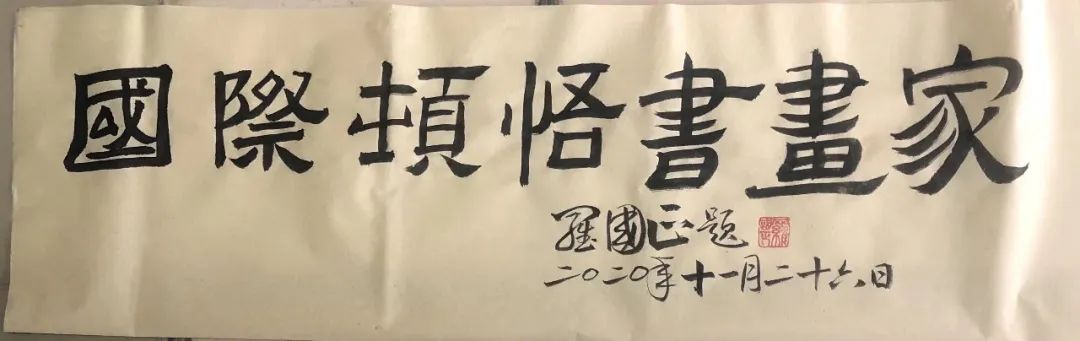 國際頓悟書畫家
羅國正題
二〇二〇年十一月二十六日